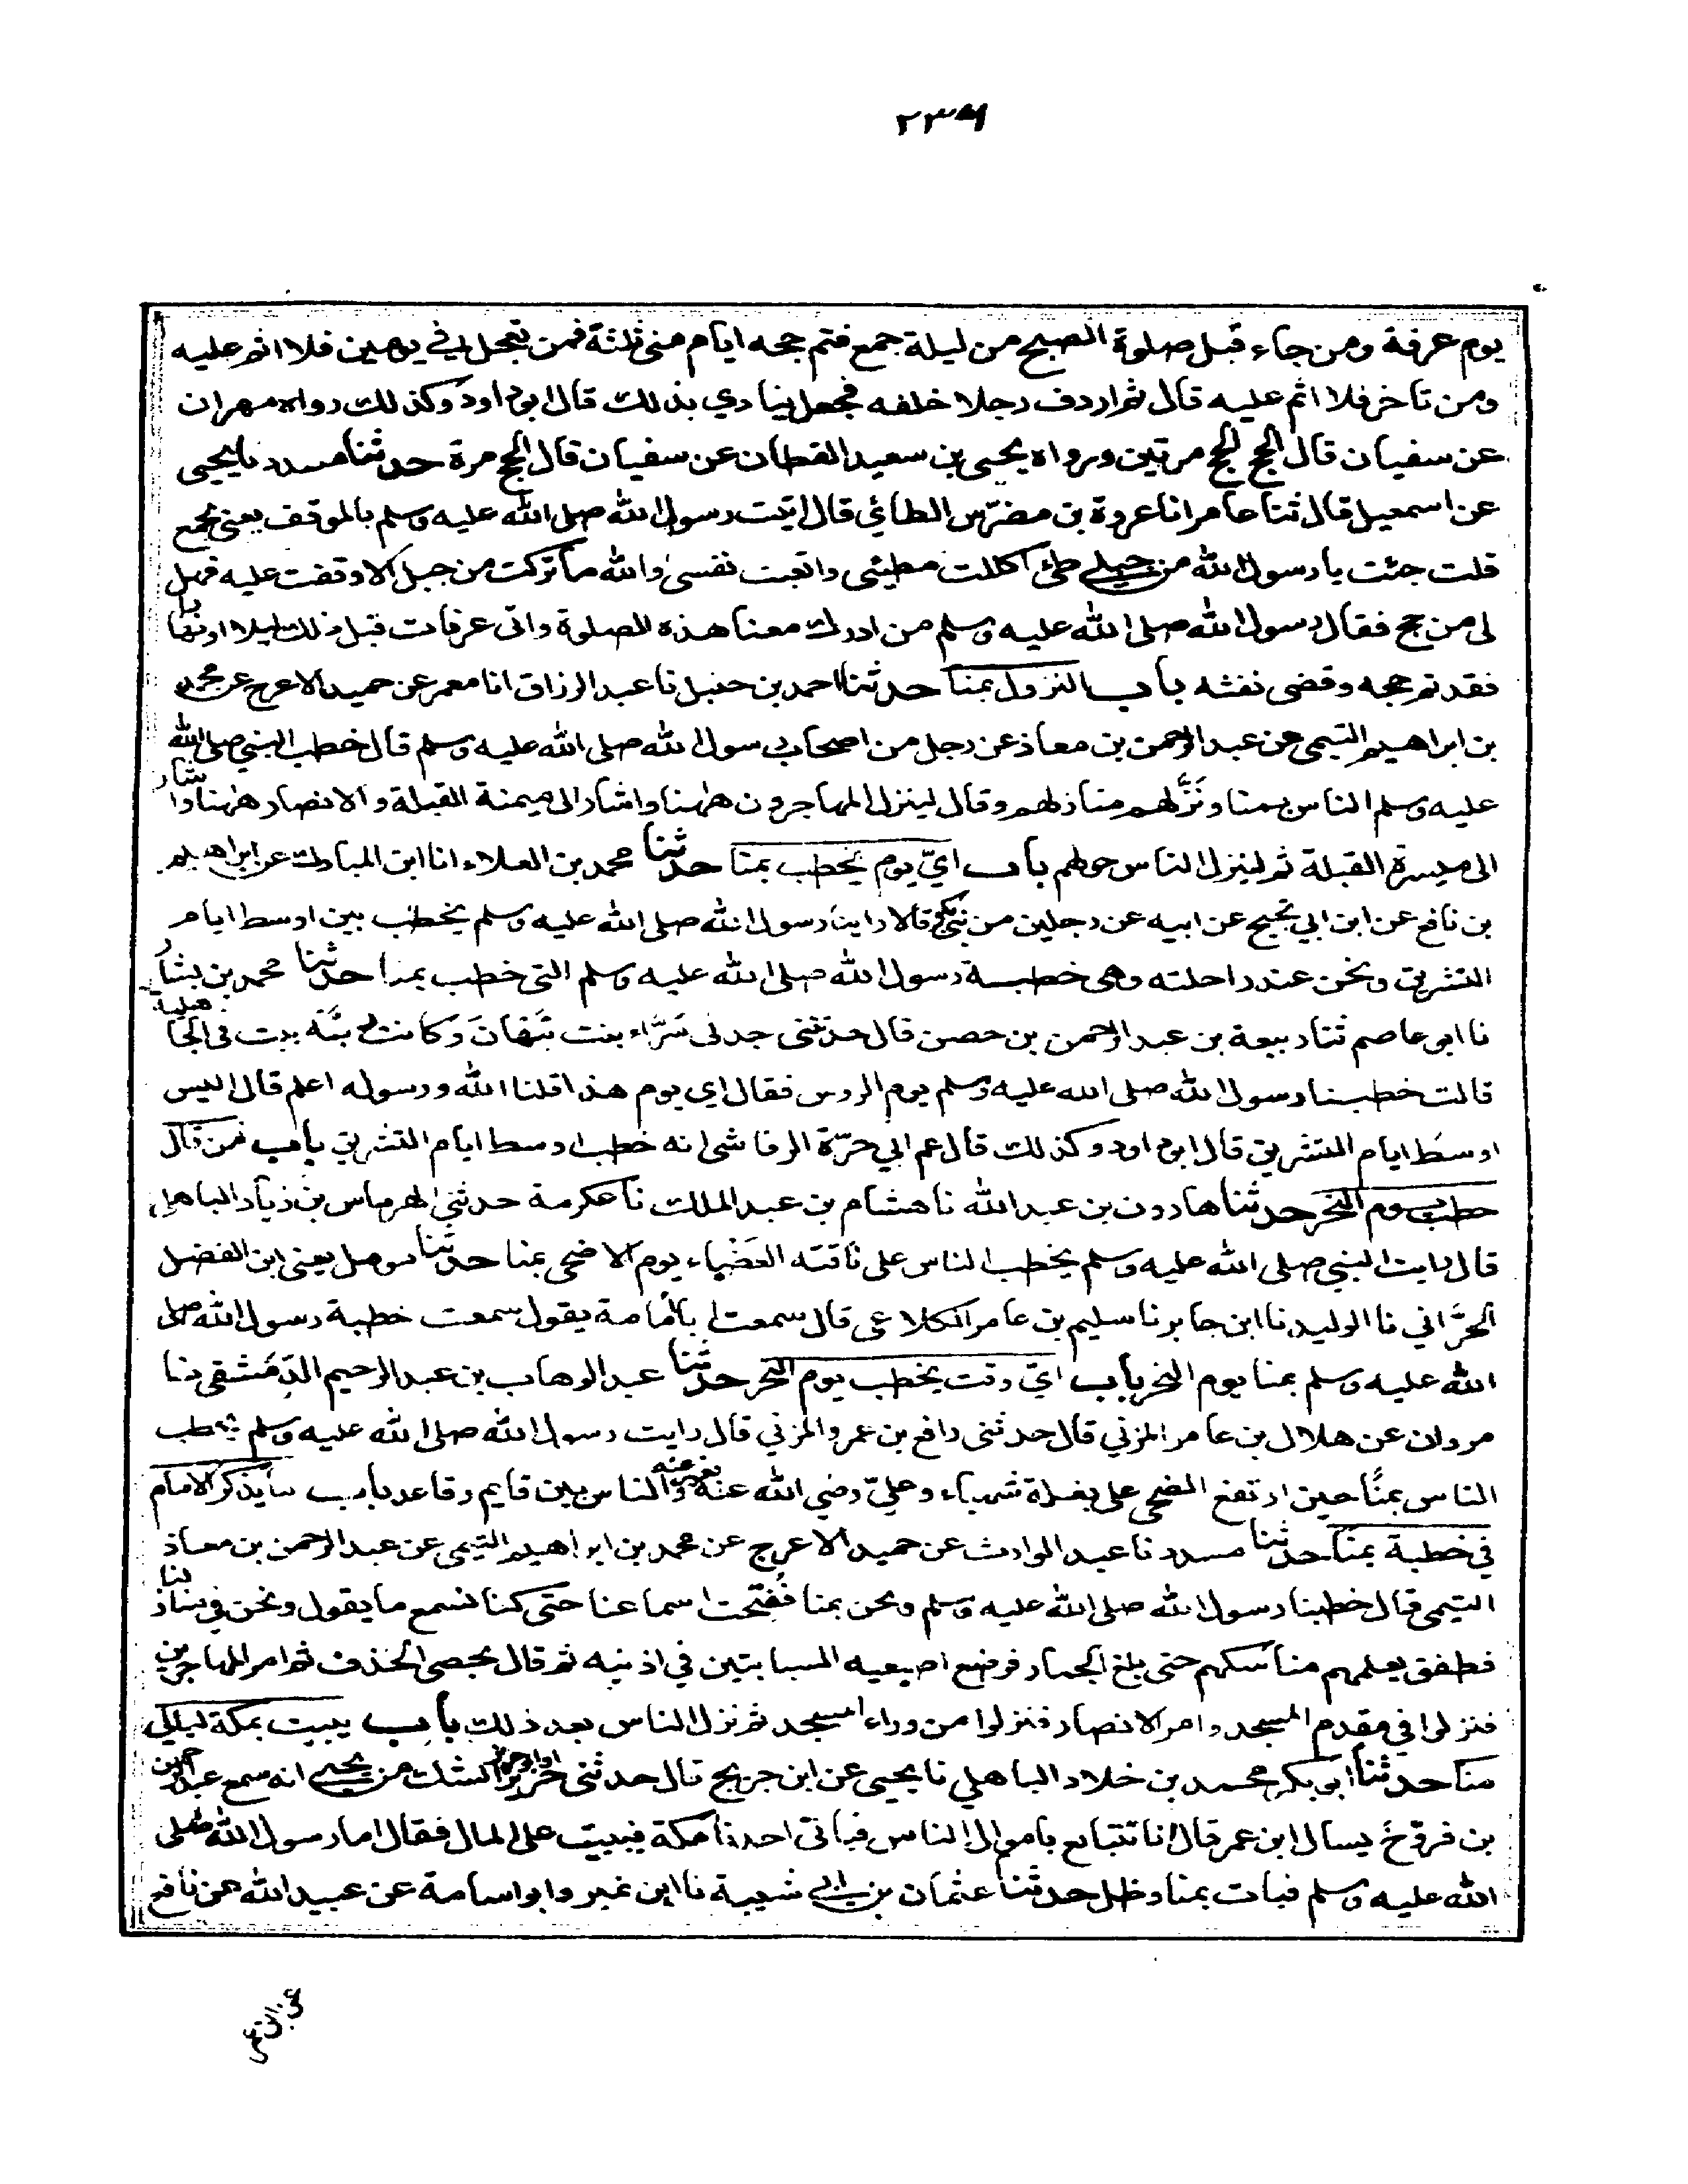 ٢٣٦
يوم عرفة ومن جاء قبل صلوة الصبح من ليلة جمع فتم حجه ايام منى ثلثة فمن تعجل في يومين فلا اثم عليه
ومن تاخر فلا اثم عليه قال ثم اردف رجلا خلفه فجعل ينادي بذلك قال ابو داود وكذلك رواه مهران
عن سفيان قال الحج الحج مرتين ورواه يحيى بن سعيد القطان عن سفيان قال الحج مرة حدثنا مسدد نا يحيى
عن اسمعيل قال ثنا عامر انا عروة بن مضرّس الطائي قال اتيت رسول الله صلى الله عليه وسلم بالموقف يعني بجمع
قلت جئت يا رسول الله من جبلي طئ اكللت مطيتى واتعبت نفسى والله ما تركت من جبل الا وقفت عليه فهل
لى من حج فقال رسول الله صلى الله عليه وسلم من ادرك معنا هذه الصلوة واتى عرفات قبل ذلك ليلا او نهارا
فقد تم حجه وقضى تفثه باب النزول بمنا حدثنا احمد بن حنبل نا عبد الرزاق انا معمر عن حميد الاعرج عن محمد
بن ابراهيم التيمى عن عبد الرحمن بن معاذ عن رجل من اصحاب رسول الله صلى الله عليه وسلم قال خطب النبي صلى الله
عليه وسلم الناس بمنا ونَزَّلهم منازلهم وقال لينزل المهاجرون ههنا واشار الى ميمنة القبلة والانصار ههنا واشار
الى ميسرة القبلة ثم لينزل الناس حولهم باب ايّ يوم يخطب بمنا حدثنا محمد بن العلاء انا ابن المبارك عن ابراهيم
بن نافع عن ابن ابي نجيح عن ابيه عن رجلين من بني بكر قالا راينا رسول الله صلى الله عليه وسلم يخطب بين اوسط ايام
التشريق ونحن عند راحلته وهى خطبة رسول الله صلى الله عليه وسلم التى خطب بمنا حدثنا محمد بن بشار
نا ابو عاصم ثنا ربيعة بن عبد الرحمن بن حصن قال حدثتنى جدتى سَرَّاء بنت نَبْهَانَ وكانت ربَّة بيت فى الجاهلية
قالت خطبنا رسول الله صلى الله عليه وسلم يوم الروس فقال اي يوم هذا قلنا الله ورسوله اعلم قال اليس
اوسَط ايام التشريق قال ابو داود وكذلك قال عم ابي حرّة الرقاشى انه خطب اوسط ايام التشريق باب من قال
خطب يوم النحر حدثنا هارون بن عبد الله نا هشام بن عبد الملك نا عكرمة حدثني الهرماس بن زياد الباهلى
قال رايت النبي صلى الله عليه وسلم يخطب الناس على ناقته العَضْباء يوم الاضحى بمنا حدثنا مومل يعنى ابن الفضل
الحرَّاني نا الوليد نا ابن جابر نا سليم بن عامر الكلاعى قال سمعت ابا امامة يقول سمعت خطبة رسول الله صلى
الله عليه وسلم بمنا يوم النحر باب ايّ وقت يخطب يوم النحر حدثنا عبد الوهاب بن عبد الرحيم الدّمَشقى نا
مروان عن هلال بن عامر المزني قال حدثنى رافع بن عمرو المزني قال رايت رسول الله صلى الله عليه وسلم يخطب
الناس بمنًا حين ارتفع الضحى على بغلة شهباء وعليّ رضي الله عنه يعبر عنه والناس بين قايم وقاعد باب ما يذكر الامام
في خطبة بمنا حدثنا مسدد نا عبد الوارث عن حميد الاعرج عن محمد بن ابراهيم التيمى عن عبد الرحمن بن معاذ
التيمى قال خطبنا رسول الله صلى الله عليه وسلم ونحن بمنا فُفتّحت اسماعنا حتى كنا نسمع ما يقول ونحن في منازلنا
فطفق يعلمهم مناسكهم حتى بلغ الجمار فوضع اصبعيه السبابتين في اذنيه ثم قال بحصى الخذف ثم امر المهاجرين
فنزلوا في مقدم المسجد وامر الانصار فنزلوا من وراء المسجد ثم نزل الناس بعد ذلك باب يبيت بمكة ليالي
منا حدثنا ابو بكر محمد بن خلاد الباهلي نا يحيى عن ابن جريج قال حدثنى حريز او ابو حريز الشك من يحيى انه سمع عبد الرحمن
بن فرّوخ يسال ابن عمر قال انا نتبايع باموال الناس فياتى احدنا مكة فيبيت على المال فقال اما رسول الله صلى
الله عليه وسلم فبات بمنا وظل حدثنا عثمان بن ابي شيبة نا ابن نمير وابو اسامة عن عبيد الله عن نافع